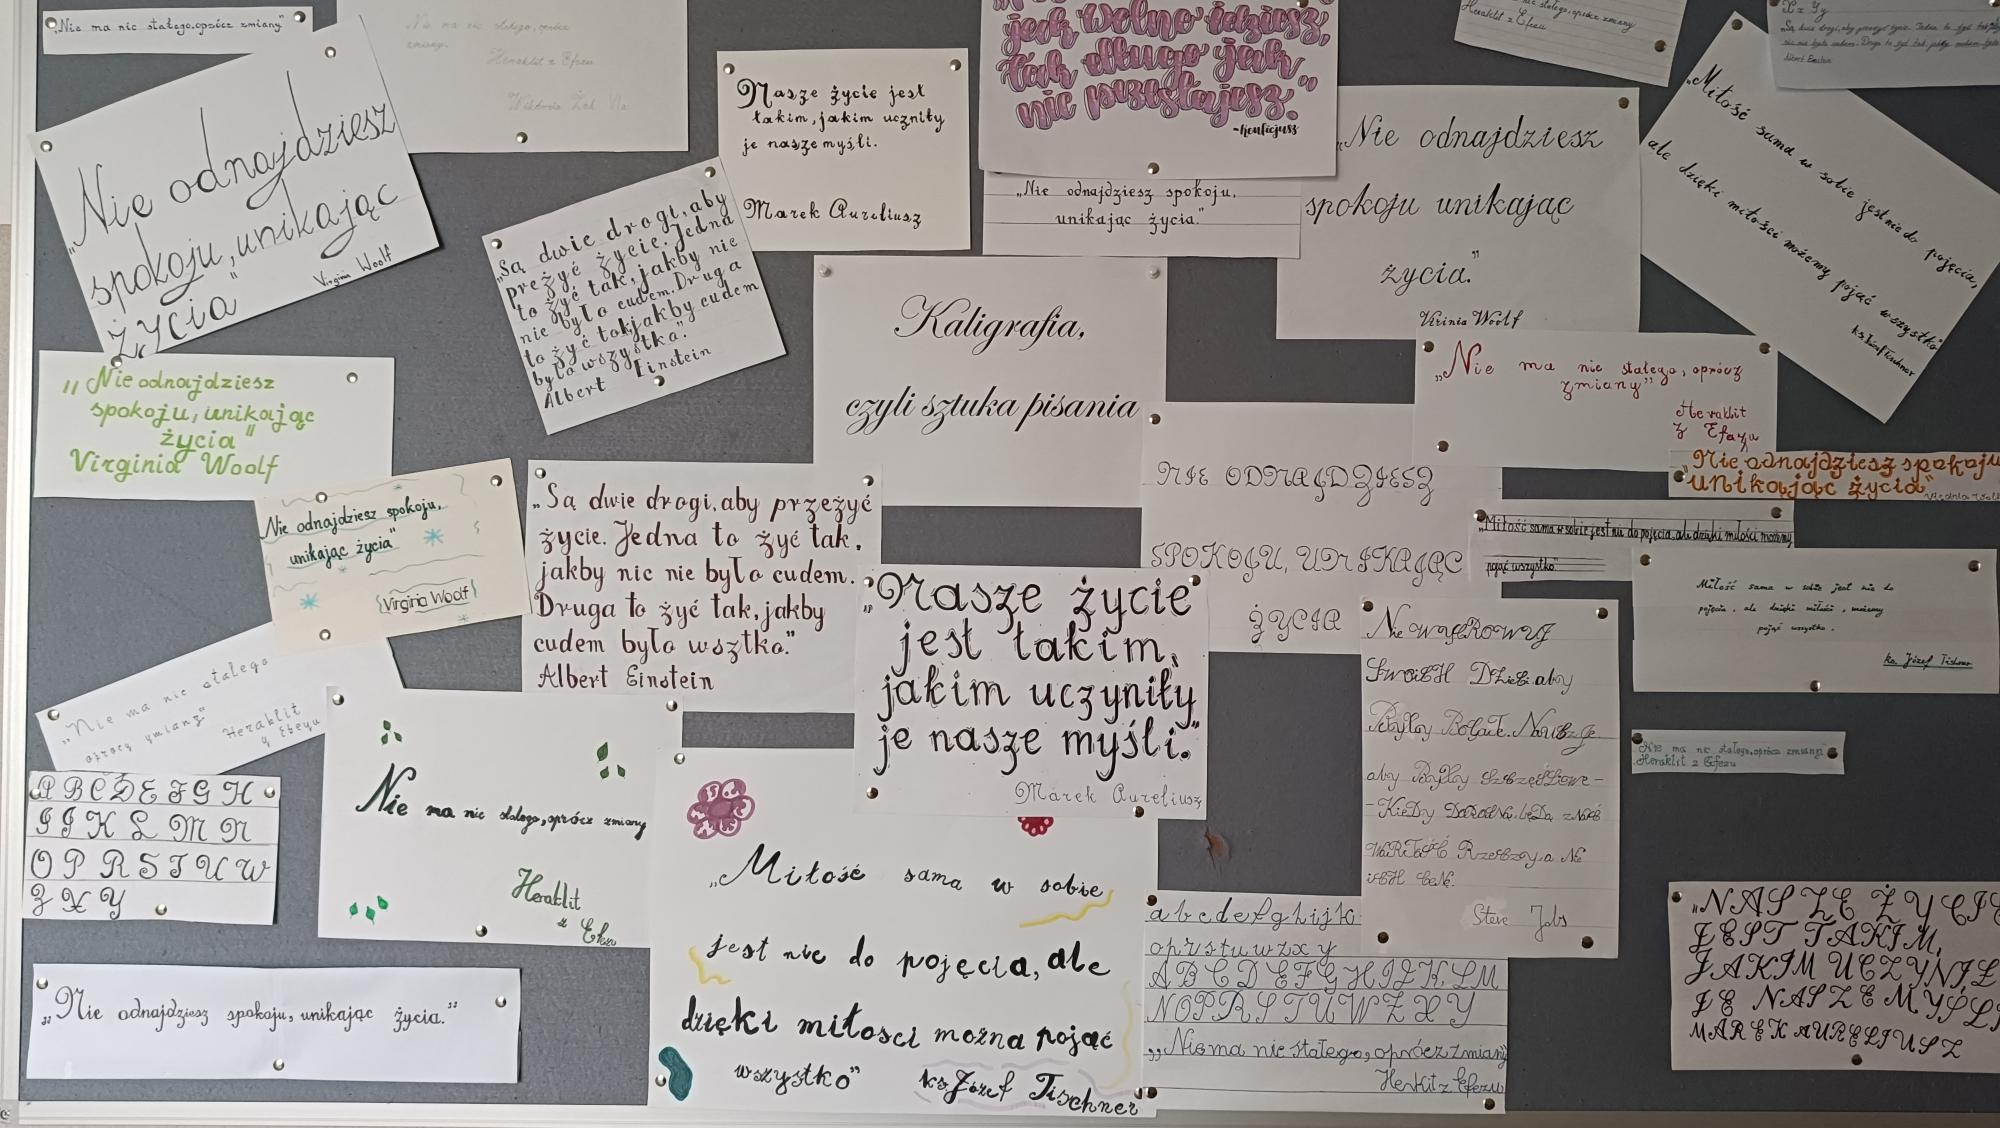 „Nie ma nic stałego, oprócz zmiany"
Nie ma nic stałego, oprócz
zmiany.
Heraklit z Efezu
Wiktoria Żak
jak wolno idziesz,
tak długo jak
nic przestajesz."
-Konficjusz
stałego, oprócz zmiany
Heraklit z Efezu
Albert Einstein
„Nie odnajdziesz
spokoju, unikając
życia"
Virginia Woolf
„Są dwie drogi, aby
przeżyć życie. Jedna
to żyć tak, jakby nic
nie było cudem. Druga
to żyć tak jakby cudem
było wszystko."
Albert Einstein
Nasze życie jest
takim, jakim uczniły
je nasze myśli.
Marek Aureliusz
„Nie odnajdziesz spokoju,
unikając życia."
„Nie odnajdziesz
spokoju unikając
życia."
Virinia Woolf
„Miłość sama w sobie jest nie do pojęcia,
ale dzięki miłości możemy pojąć wszystko"
ks. Józef Tischner
Kaligrafia,
czyli sztuka pisania
„Nie odnajdziesz
spokoju, unikając
życia"
Virginia Woolf
Nie odnajdziesz spokoju,
unikając życia"
Virginia Woolf
„Są dwie drogi, aby przeżyć
życie. Jedna to żyć tak,
jakby nic nie było cudem.
Druga to żyć tak, jakby
cudem było wsztko."
Albert Einstein
NIE ODNAJDZIESZ
SPOKOJU, UNIKAJĄC
ŻYCIA
„Nie ma nic stałego, oprócz
zmiany"
Heraklit
z Efezu
„Nie odnajdziesz spokoju
unikając życia"
„Miłość sama w sobie jest nie do pojęcia, ale dzięki miłości możemy
pojąć wszystko"
Miłość sama w sobie jest nie do
pojęcia, ale dzięki miłości, możemy
pojąć wszystko.
ks. Józef Tischner
„Nasze życie
jest takim,
jakim uczyniły
je nasze myśli."
Marek Aureliusz
„Nie ma nic stałego
oprócz zmiany"
Heraklit
z Efezu
Nie ma nic stałego, oprócz zmiany
Heraklit z Efezu
A B C D E F G H
I J K L M N
O P R S T U W
Z X Y
Nie ma nic stałego, oprócz zmiany
Heraklit
z Efezu
„Miłość sama w sobie
jest nie do pojęcia, ale
dzięki miłości można pojąć
wszystko"
ks. Józef Tischner
Steve Jobs
a b c d e f g h i j k l
o p r s t u w z x y
A B C D E F G H I J K L M
N O P R S T U W Z X Y
„Nie ma nic stałego, oprócz zmiany
Heraklit z Efezu
„NASZE ŻYCIE
JEST TAKIM,
JAKIM UCZYNIŁ
JE NASZE MYŚLI
MAREK AURELIUSZ
„Nie odnajdziesz spokoju, unikając życia."